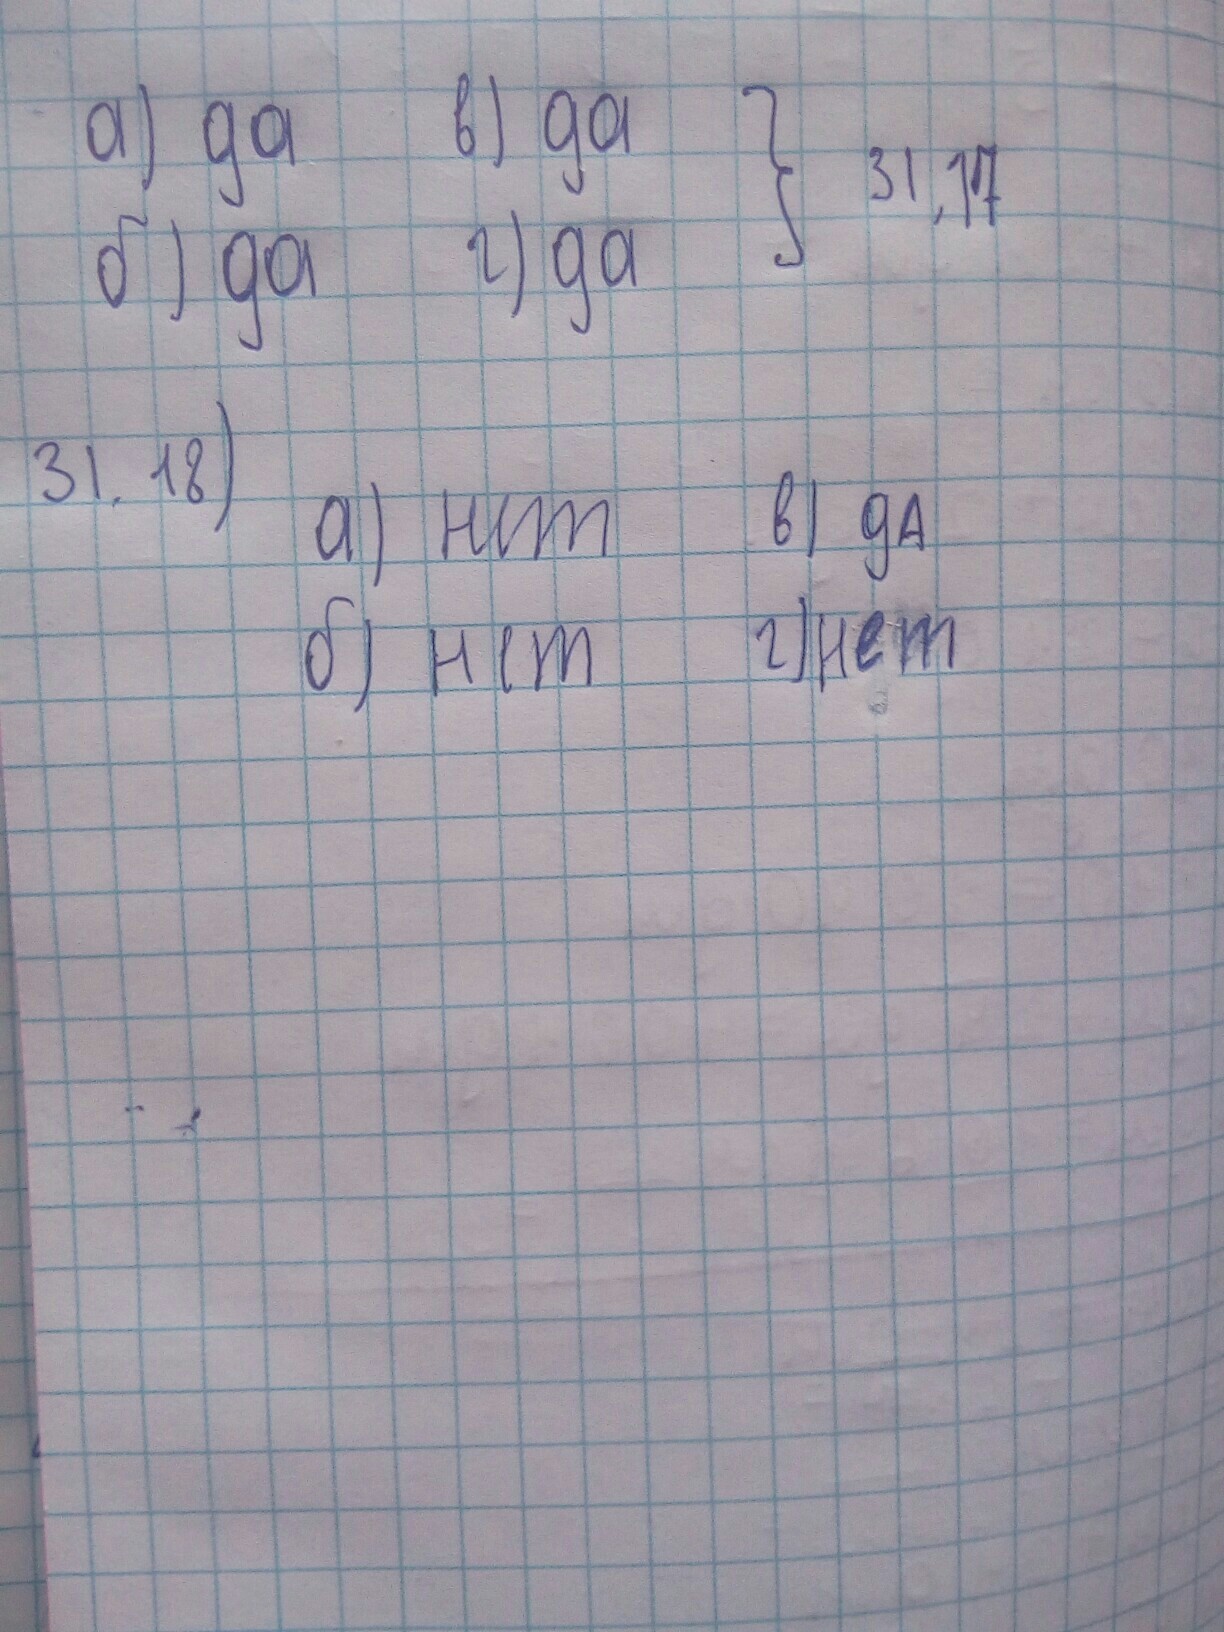 а) да в) да } 31,17
б) да г) да
31.18)
а) нет в) дА
б) нет г) нет